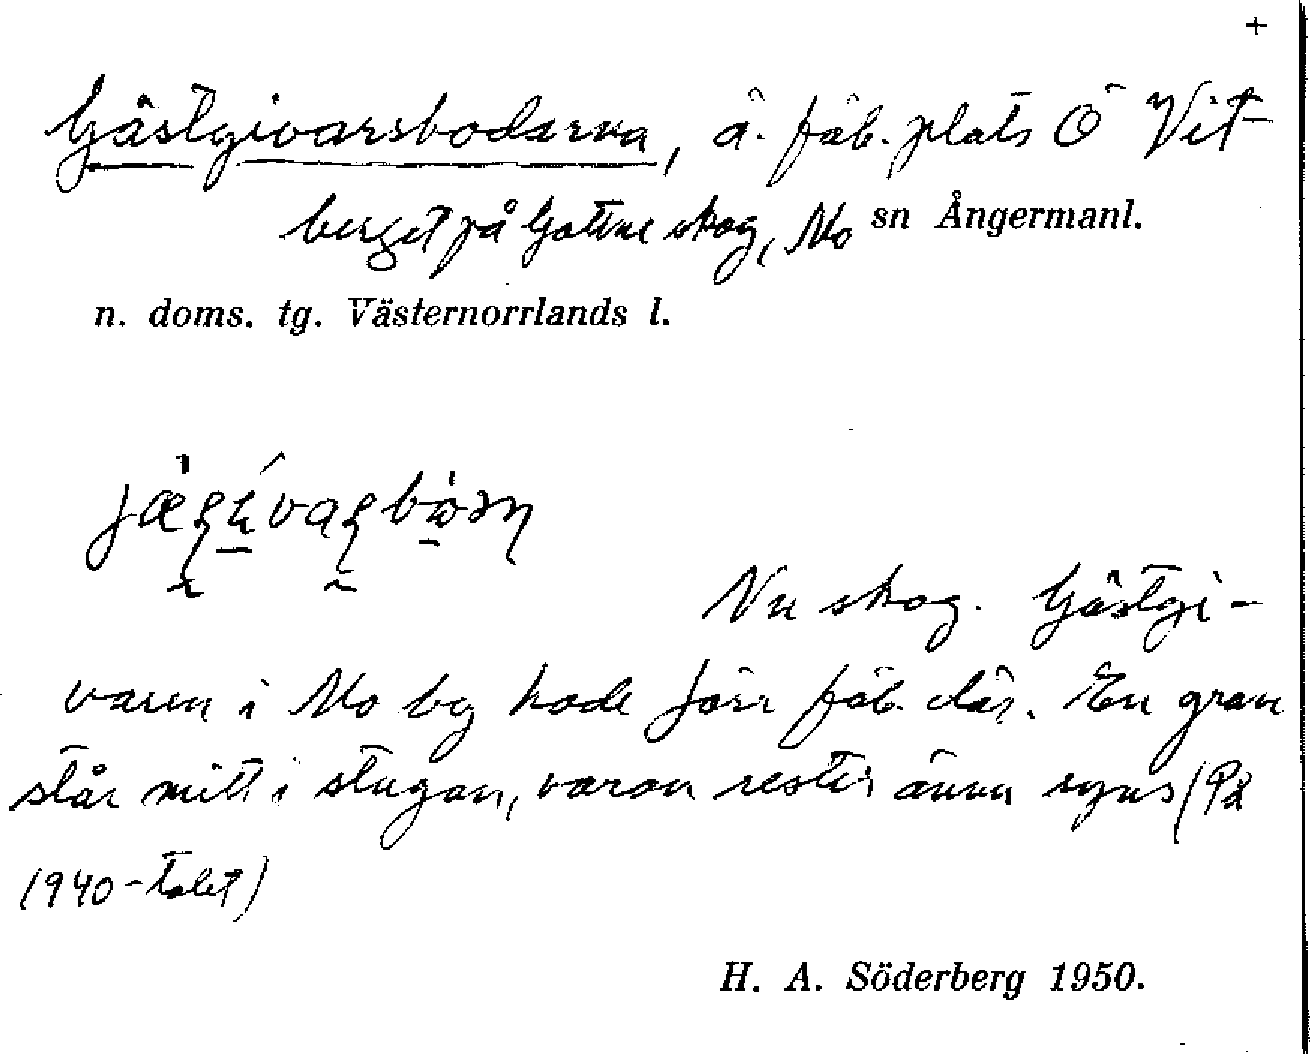 +
Gästgivarsbodarna, ä. fäb.plats Ö Vit-
berget på Gottne skog, Mo sn Ångermanl.
n. doms. tg. Västernorrlands l.
Nu skog. Gästgi-
varen i Mo by hade förr fäb. där. En gran
står mitt i stugan, varav rester ännu synas (På
1940-talet)
H. A. Söderberg 1950.